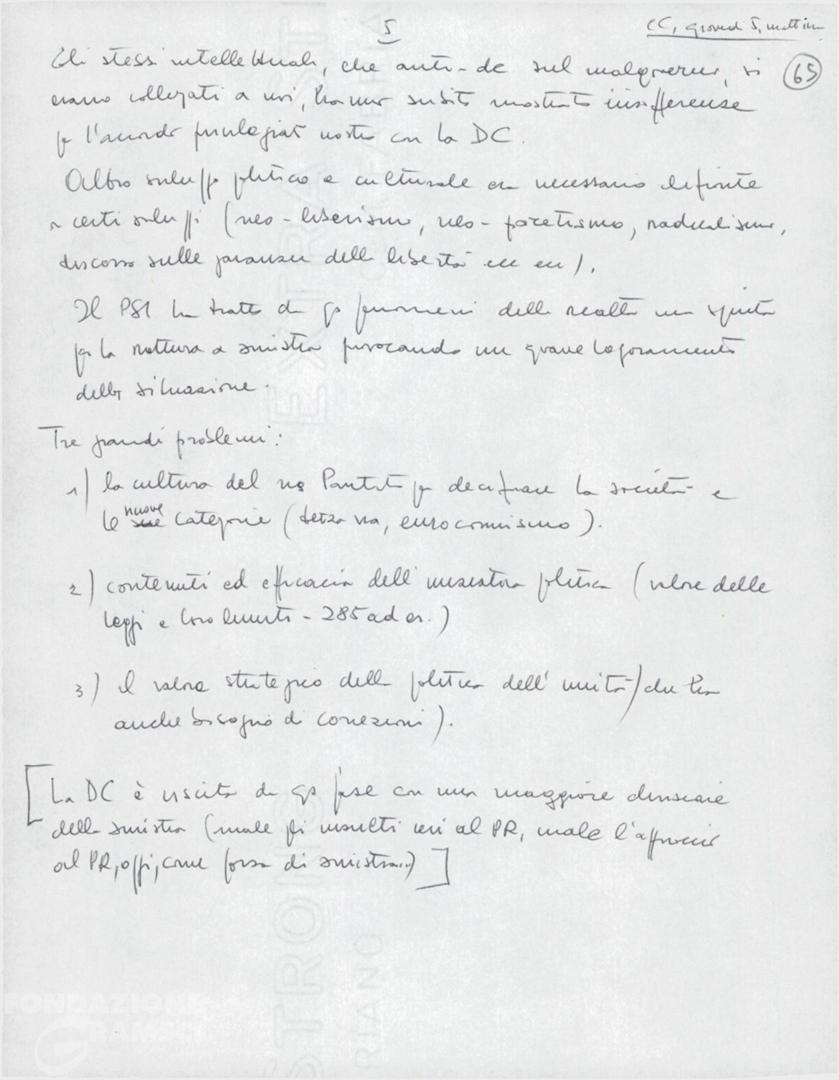 5
CC, giovedì 5, mattina
65
Gli stessi intellettuali, che anti-dc sul malgoverno, si
erano collegati a noi, hanno subito mostrato insofferenze
p l'accordo privilegiato nostro con la DC.
Altro sviluppo politico e culturale era necessario di fronte
a certi sviluppi (neo-liberismo, neo-              , radicalismo,
discorso sulle garanzie delle libertà ecc ecc).
Il PSI ha tratto da qs fenomeni della realtà una spinta
per la rottura a sinistra provocando un grave logoramento
della situazione.
Tre grandi problemi:
1) la cultura del ns Partito p decifrare la società e
le nuove categorie (terza via, eurocomunismo).
2) contenuti ed efficacia dell'iniziativa politica (valore delle
leggi e loro limiti - 285 ad es.)
3) il valore strategico della politica dell'unità (che ha
anche bisogno di correzioni).
[La DC è uscita da qs fase con una maggiore divisione
della sinistra (male gli insulti ieri al PR, male l'approccio
al PR, oggi, come forza di sinistra..)]
FONDAZIONE
GRAMSCI
EXTRA STRONG
FABRIANO